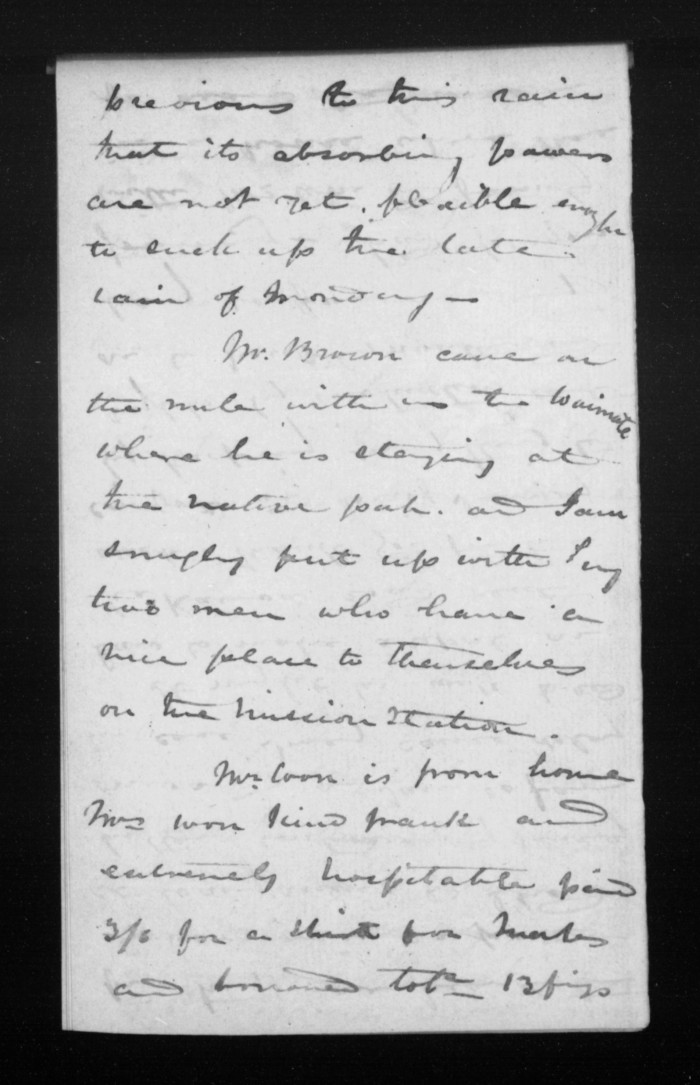 previous to this rain
that its absorbing powers
are not yet flexible enough
to suck up the late
rain of Monday –
Mr. Brown came on
the mule with us to Waimate
where he is staying at
the native pah. and I am
snugly put up with my
two men who have a
nice place to themselves
on the Mission Station.
Mr is from home
Mrs kind frank and
extremely hospitable paid
3/6 for a shirt for
and borrowed tobc 13 figs